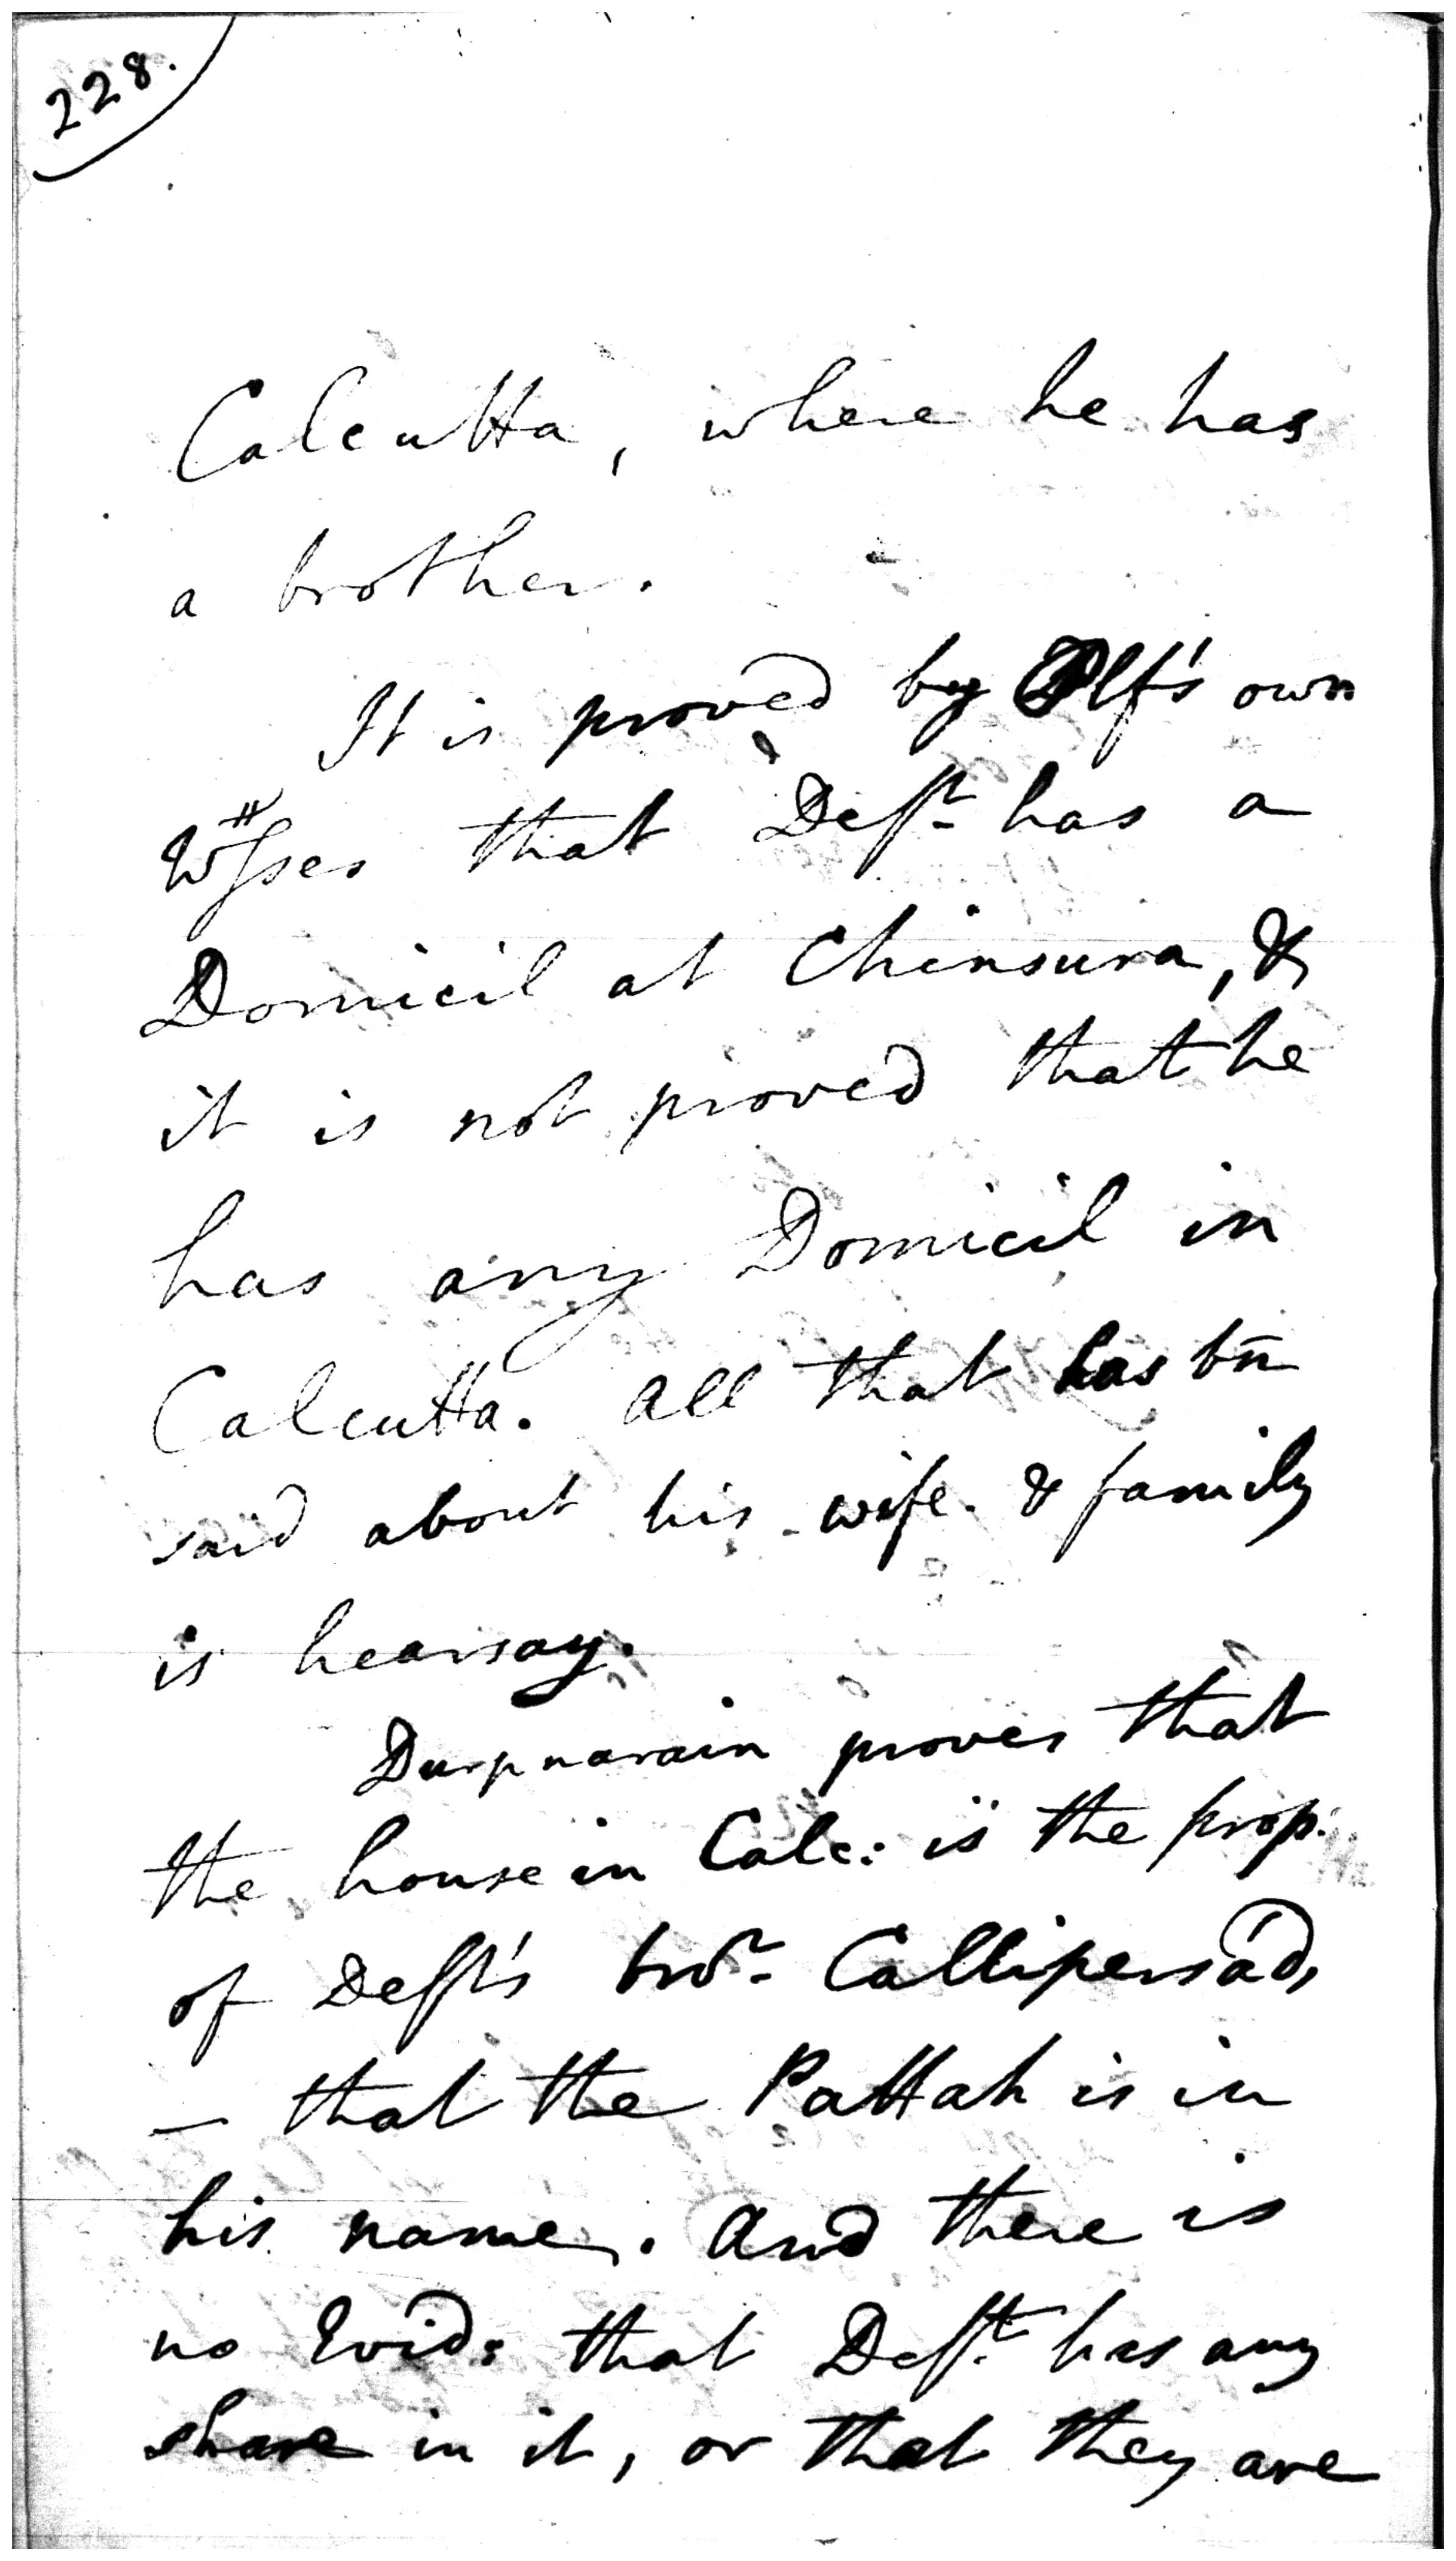 228.
Calcutta, where he has
a brother.
It is proved by Plf's own
Wsses that Deft has a
Domicil at Chinsura, &
it is not proved that he
has any Domicil in
Calcutta. All that has bn̄
said about his wife & family
is hearsay.
Durpnarain proves that
the house in Calc: is the prop.
of Deft's bror. Callipersad,
— that the Pattah is in
his name. And there is
no Evid: that Deft. has any
share in it, or that they are